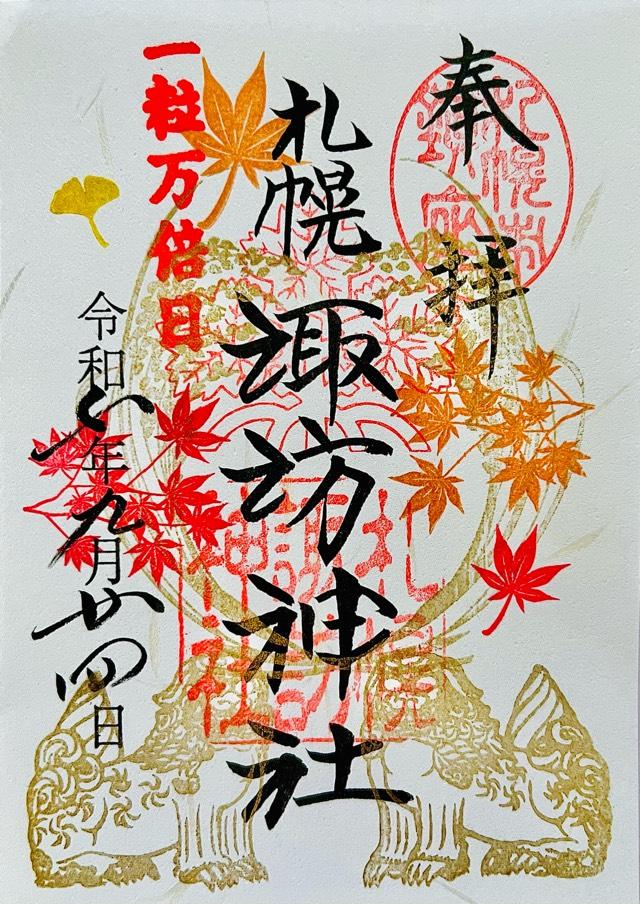 奉拝
札幌諏訪神社
札幌諏訪神社
一粒万倍日
令和六年九月廿四日